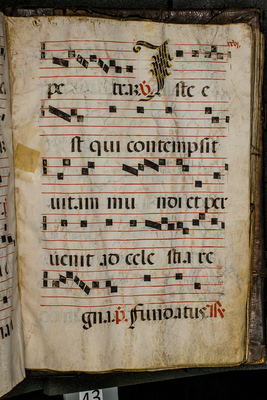 pe tra. ℣. Iste e
st qui contempsit
uitam mu ndi et per
uenit ad cele stia re
gna. ℟. fundatus. ℟
43